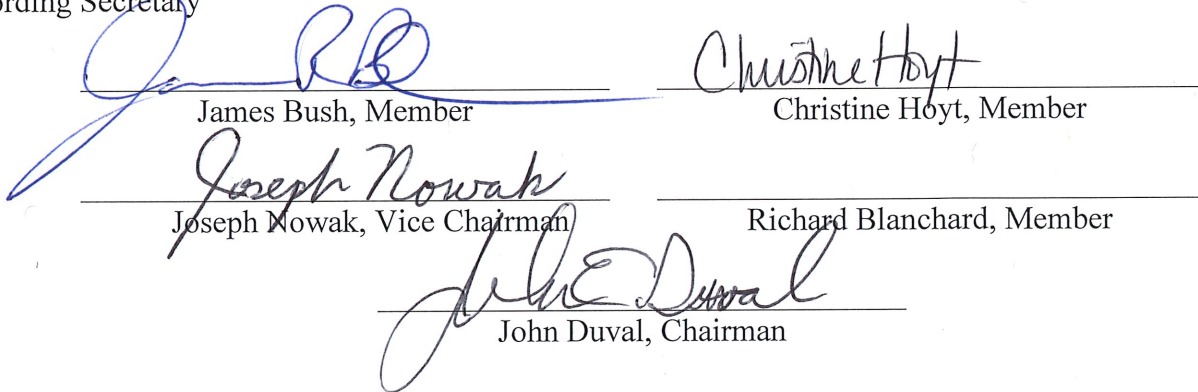 ording Secretary
James R B Christine Hoyt
James Bush, Member Christine Hoyt, Member
Joseph Nowak
Joseph Nowak, Vice Chairman Richard Blanchard, Member
John E Duval
John Duval, Chairman